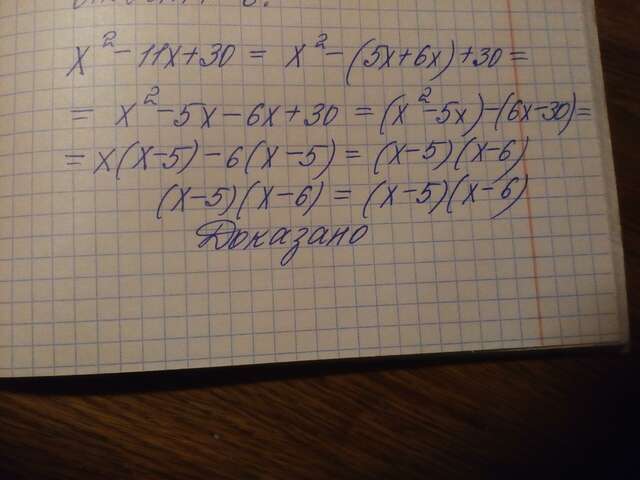 x² - 11x + 30 = x² - (5x + 6x) + 30 =
= x² - 5x - 6x + 30 = (x² - 5x) - (6x - 30) =
= x(x - 5) - 6(x - 5) = (x - 5)(x - 6)
(x - 5)(x - 6) = (x - 5)(x - 6)
Доказано